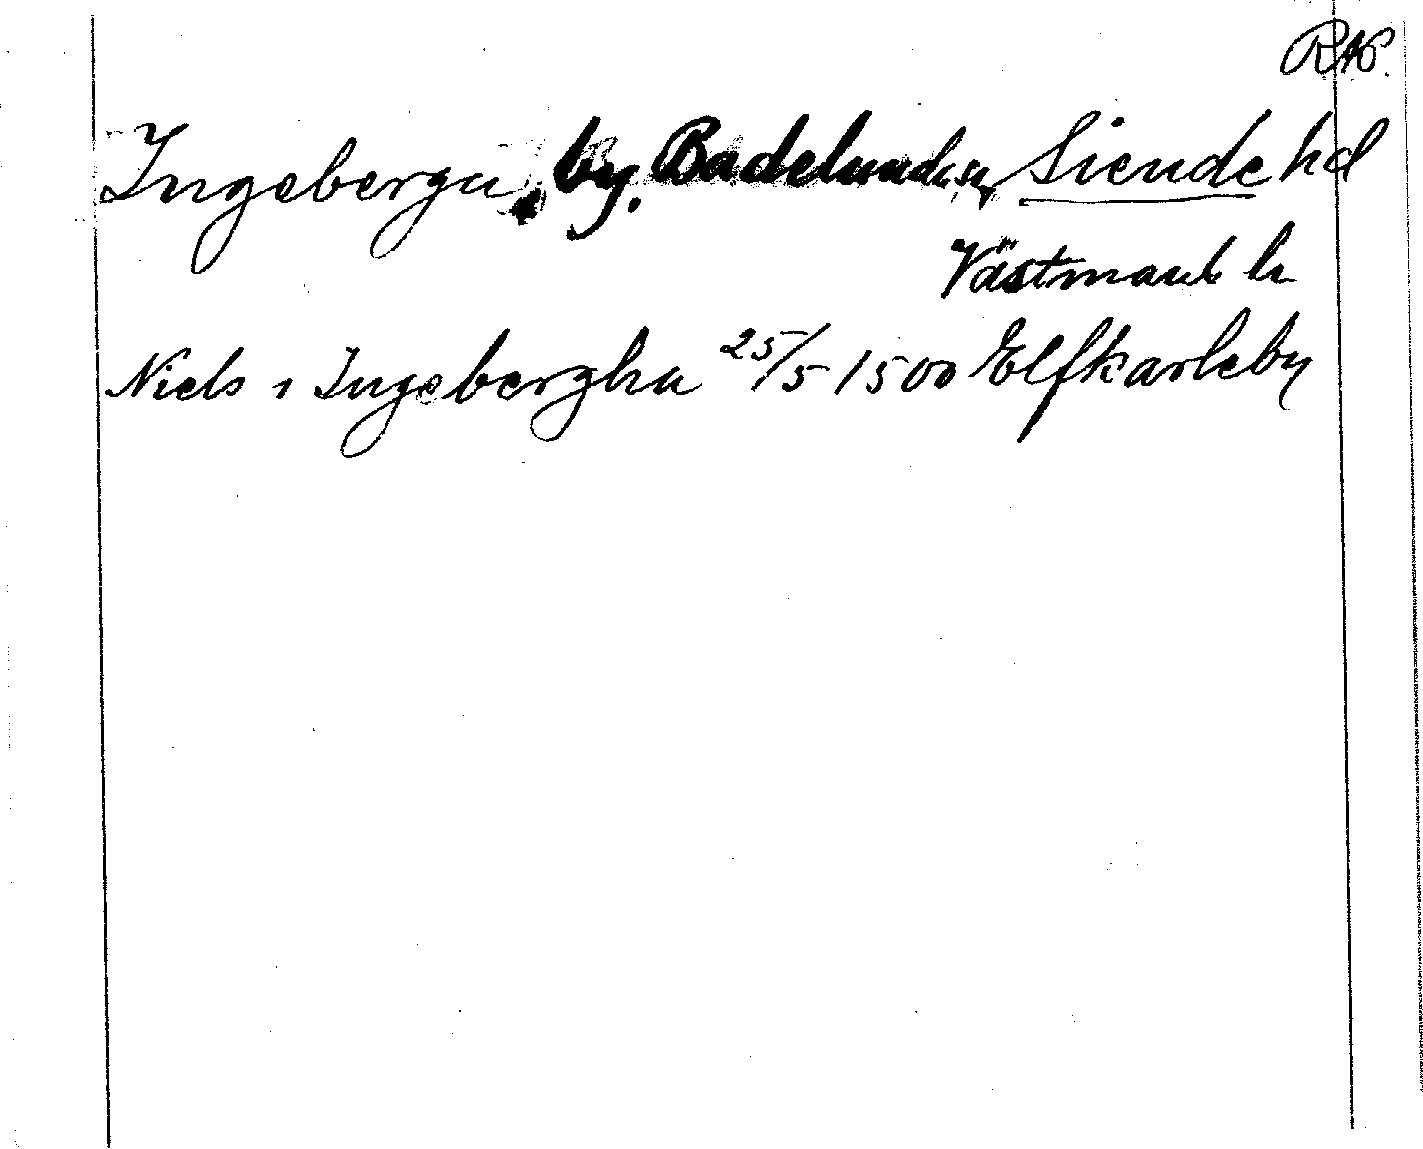 RAP.
Ingeberga, by. Badelunda sn, Siende hd
Västmanl ln
Niels i Ingebergha 25/5 1500 Elfkarleby